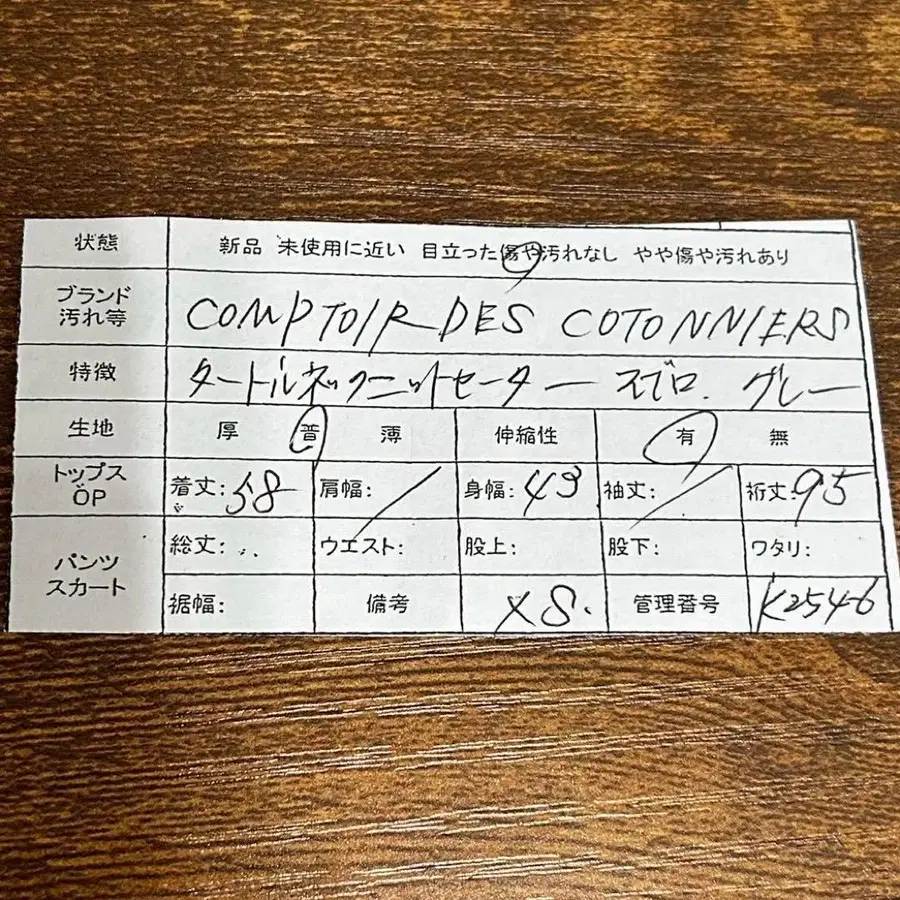 状態 新品 未使用に近い 目立った傷や汚れなし やや傷や汚れあり
ブランド
汚れ等 COMPTOIR DES COTONNIERS
特徴 タートルネックニットセーター スゲロ. グレー
生地 厚 普 薄 伸縮性 有 無
トップス
OP 着丈:58 肩幅:/ 身幅:43 袖丈:/ 裄丈:95
パンツ
スカート 総丈: ウエスト: 股上: 股下: ワタリ:
裾幅: 備考 XS. 管理番号 K2546